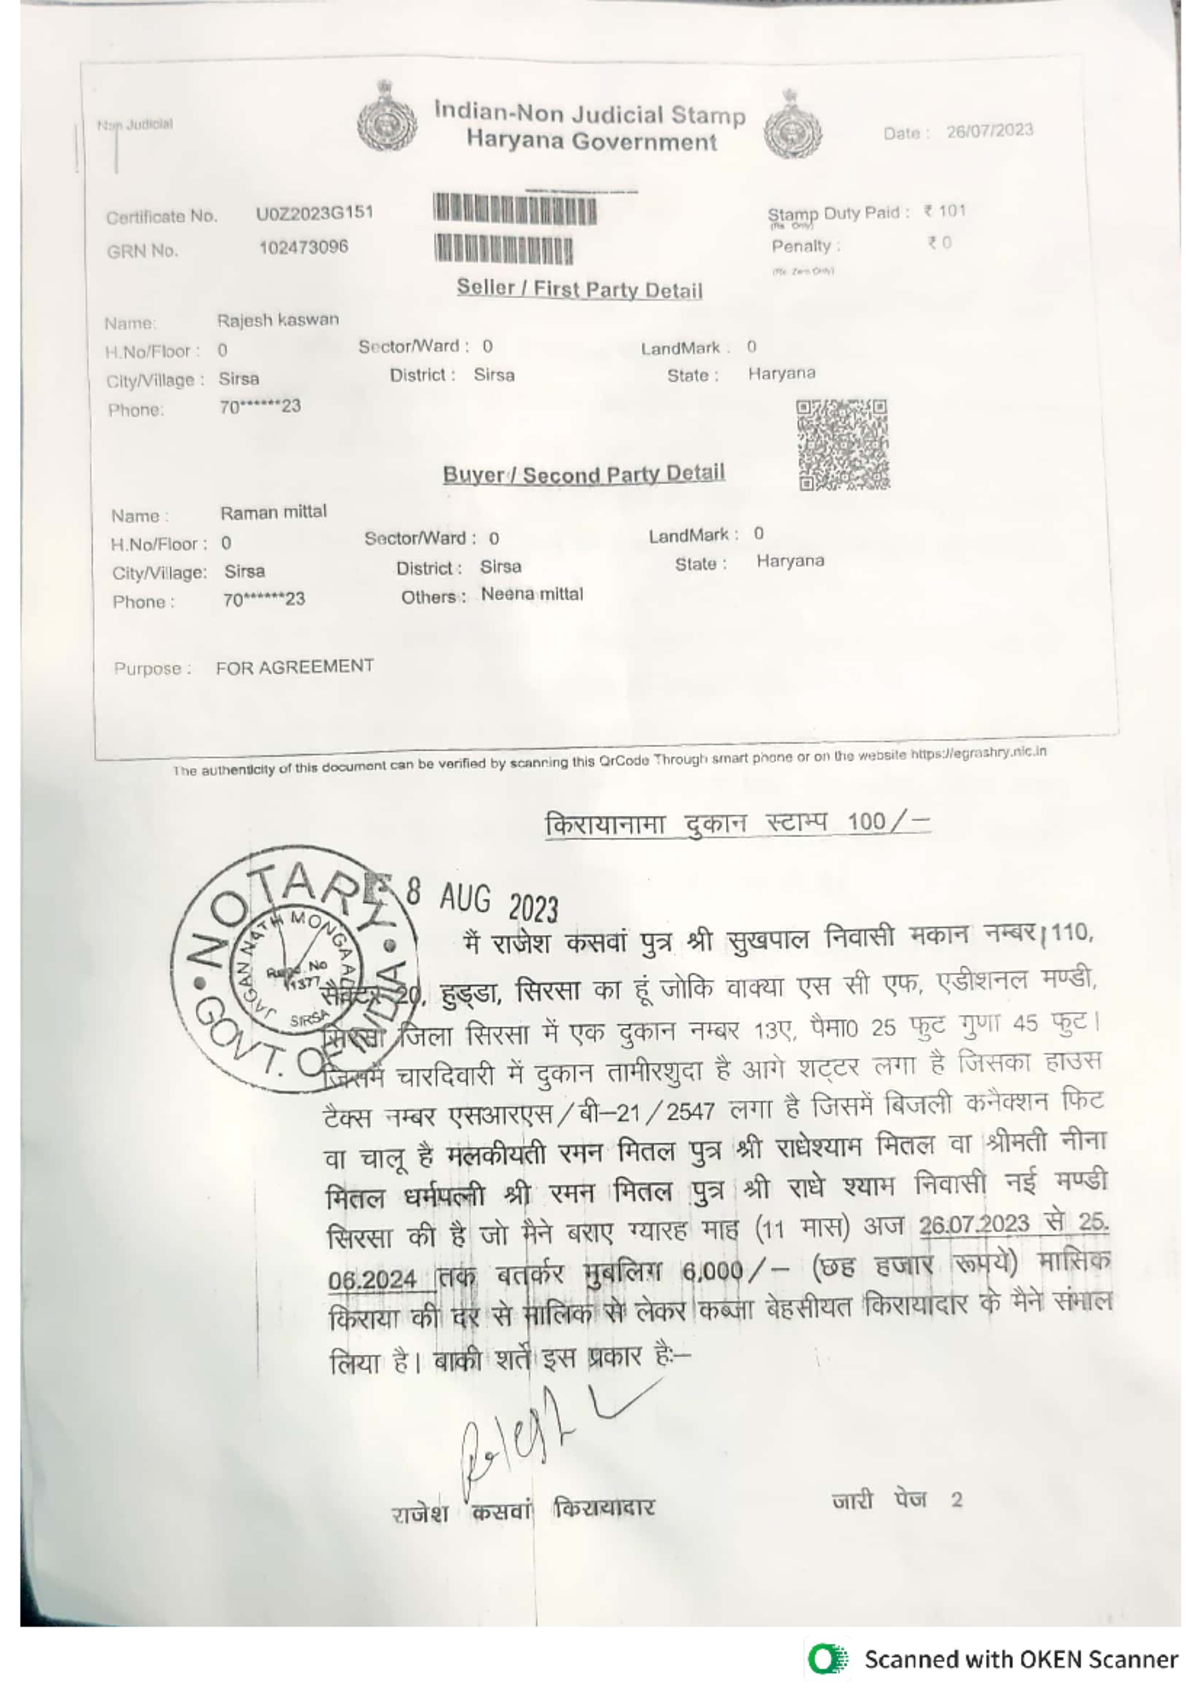 Non Judicial
Indian-Non Judicial Stamp
Haryana Government
Date : 26/07/2023
Certificate No. U0Z2023G151
GRN No. 102473096
Stamp Duty Paid : ₹ 101
(Rs. Only)
Penalty : ₹ 0
(Rs. Zero Only)
Seller / First Party Detail
Name: Rajesh kaswan
H.No/Floor : 0 Sector/Ward : 0 LandMark : 0
City/Village : Sirsa District : Sirsa State : Haryana
Phone: 70******23
Buyer / Second Party Detail
Name : Raman mittal
H.No/Floor : 0 Sector/Ward : 0 LandMark : 0
City/Village: Sirsa District : Sirsa State : Haryana
Phone : 70******23 Others : Neena mittal
Purpose : FOR AGREEMENT
The authenticity of this document can be verified by scanning this QrCode Through smart phone or on the website https://egrashry.nic.in
किरायानामा दुकान स्टाम्प 100/—
NOTARY
GOVT. OF INDIA
JAGAN NATH MONGA
Regd. No
1377
SIRSA
8 AUG 2023
मैं राजेश कसवां पुत्र श्री सुखपाल निवासी मकान नम्बर 110,
सैक्टर 20, हुड्डा, सिरसा का हूं जोकि वाक्या एस सी एफ, एडीशनल मण्डी,
सिरसा जिला सिरसा में एक दुकान नम्बर 13ए, पैमा0 25 फुट गुणा 45 फुट।
जिसमें चारदिवारी में दुकान तामीरशुदा है आगे शट्टर लगा है जिसका हाउस
टैक्स नम्बर एसआरएस/बी—21/2547 लगा है जिसमें बिजली कनैक्शन फिट
वा चालू है मलकीयती रमन मितल पुत्र श्री राधेश्याम मितल वा श्रीमती नीना
मितल धर्मपत्नी श्री रमन मितल पुत्र श्री राधे श्याम निवासी नई मण्डी
सिरसा की है जो मैने बराए ग्यारह माह (11 मास) अज 26.07.2023 से 25.
06.2024 तक बतर्कर मुबलिग 6,000/— (छह हजार रूपये) मासिक
किराया की दर से मालिक से लेकर कब्जा बेहसीयत किरायादार के मैने संभाल
लिया है। बाकी शर्ते इस प्रकार है:—
राजेश कसवां किरायादार जारी पेज 2
Scanned with OKEN Scanner